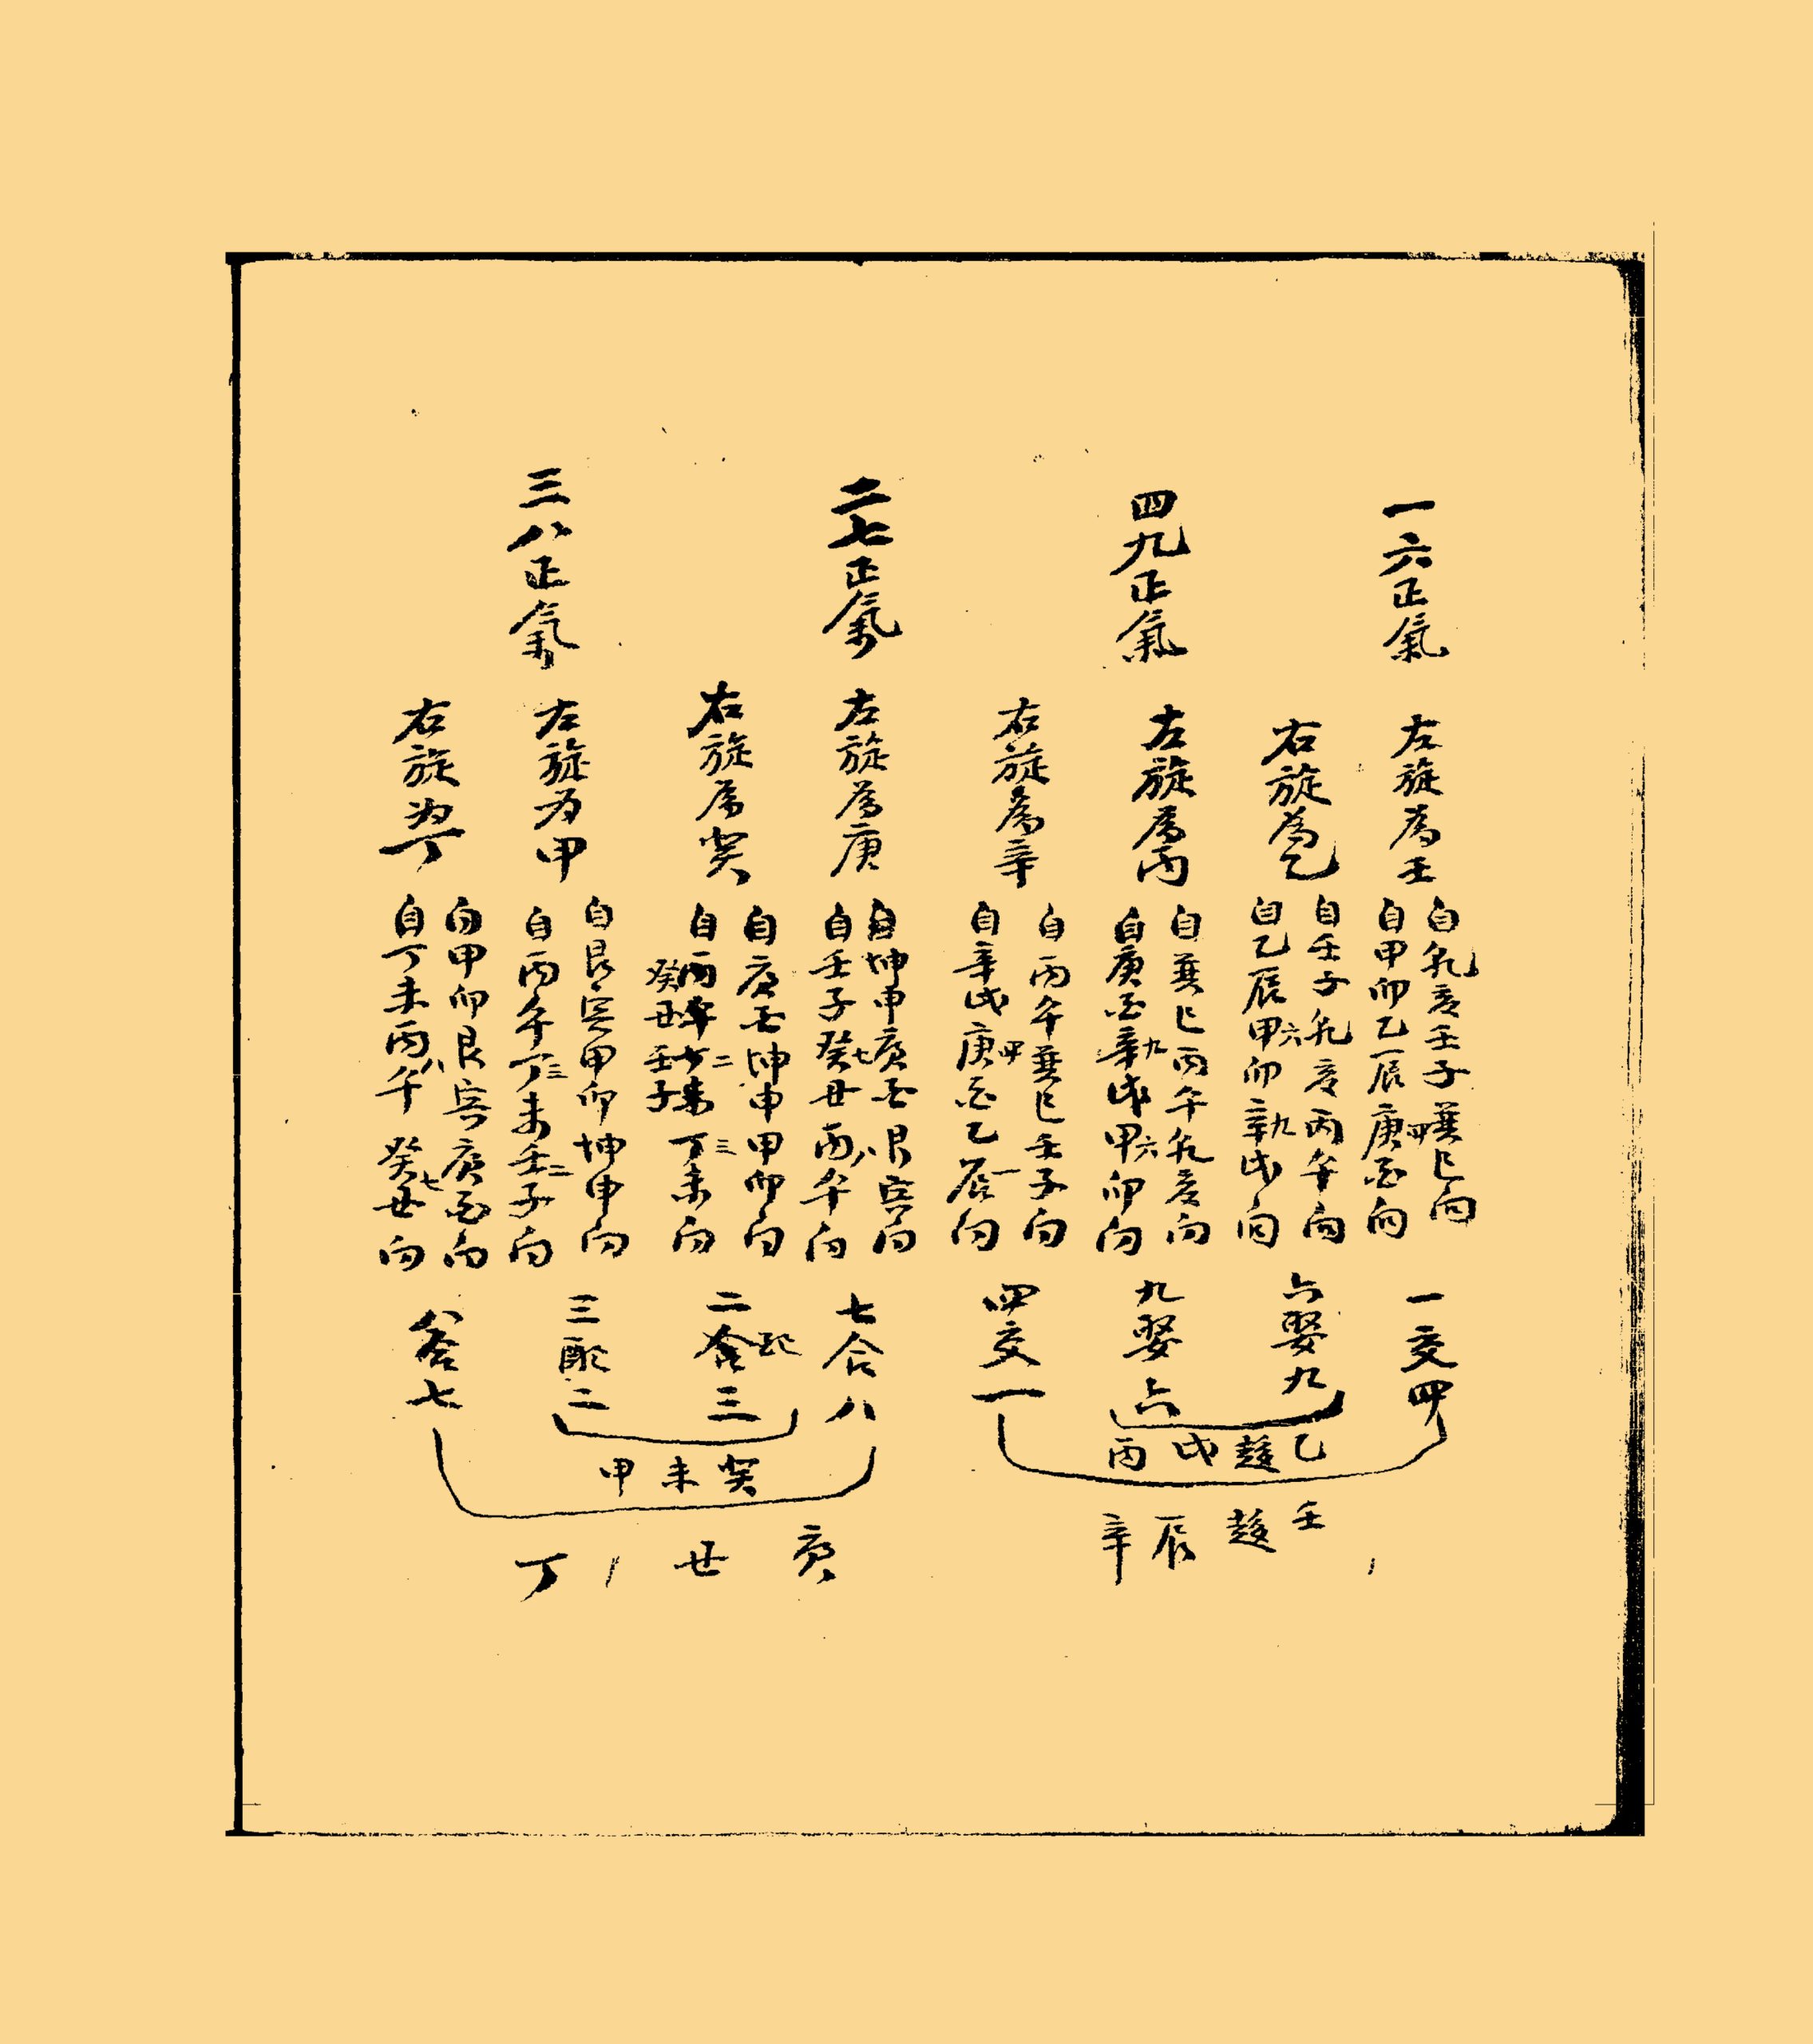 一六正氣
左旋為壬
自乾亥壬子巽巳向
自甲卯乙辰庚酉向
四
一交四
右旋為乙
自壬子乾亥丙午向
自乙辰甲卯辛戌向
六
九
六娶九
四九正氣
左旋為丙
自巽巳丙午乾亥向
自庚酉辛戌甲卯向
九
六
九娶六
右旋為辛
自丙午巽巳壬子向
自辛戌庚酉乙辰向
四
一
四交一
乙趨戌丙
壬趨辰辛
二七正氣
左旋為庚
自坤申庚酉艮寅向
自壬子癸丑丙午向
七
八
七合八
右旋為癸
自庚酉坤申甲卯向
丁未向
癸丑壬子
二
三
二
三
三八正氣
左旋为甲
自艮寅甲卯坤申向
自丙午丁未壬子向
三
二
三配二
右旋为丁
自甲卯艮寅庚酉向
自丁未丙午癸丑向
八
七
八合七
癸未甲
庚丑丁